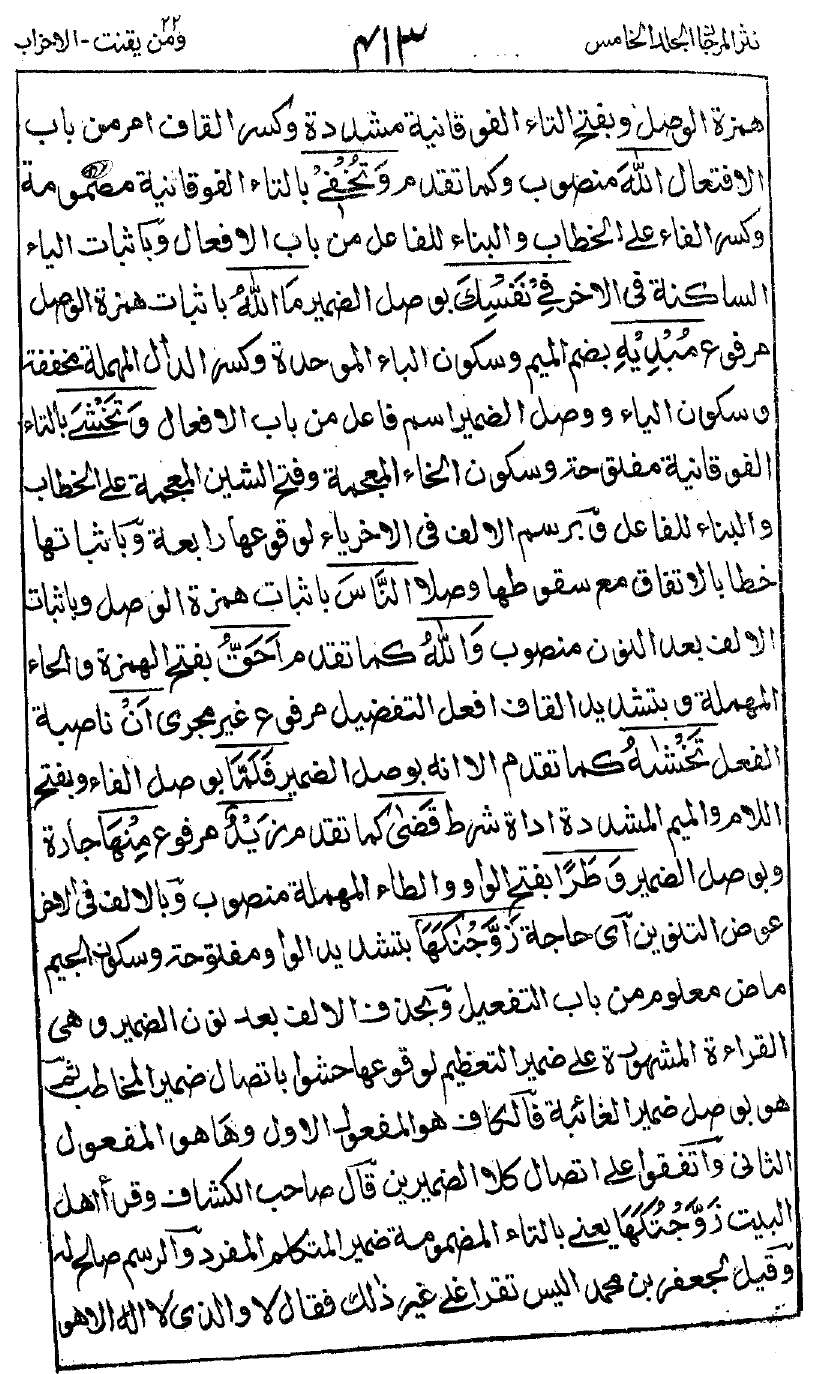 نثر المرجان المجلد الخامس ٤١٣ ومن يقنت ٢٢ - الاحزاب
همزة الوصل وبفتح التاء الفوقانية مشددة وكسر القاف امر من باب
الافتعال اللهَ منصوب وكما تقدم وَتُخْفِيْ بالتاء الفوقانية مضمومة
وكسر الفاء على الخطاب والبناء للفاعل من باب الافعال وباثبات الياء
الساكنة فى الاخر فِيْ نَفْسِكَ بوصل الضمير مَا اللهُ باثبات همزة الوصل
مرفوع مُبْدِيْهِ بضم الميم وسكون الباء الموحدة وكسر الدال المهملة مخففة
وسكون الياء ووصل الضمير اسم فاعل من باب الافعال وَتَخْشَے بالتاء
الفوقانية مفتوحة وسكون الخاء المعجمة وفتح الشين المعجمة على الخطاب
والبناء للفاعل وبرسم الالف فى الاخر ياء لوقوعها رابعة وباثباتها
خطا بالاتفاق مع سقوطها وصلا النَّاسَ باثبات همزة الوصل وباثبات
الالف بعد النون منصوب وَاللهُ كما تقدم اَحَقُّ بفتح الهمزة والحاء
المهملة وبتشديد القاف افعل التفضيل مرفوع غير مجرى اَنْ ناصبة
الفعل تَخْشٰىهُ كما تقدم الا انه بوصل الضمير فَلَمَّا بوصل الفاء وبفتح
اللام والميم المشددة اداة شرط قَضٰى كما تقدم زَيْدٌ مرفوع مِنْهَا جارة
وبوصل الضمير وَطَرًا بفتح الواو والطاء المهملة منصوب وبالالف فى الاخر
عوض التنوين اى حاجة زَوَّجْنٰكَهَا بتشديد الواو مفتوحة وسكون الجيم
ماض معلوم من باب التفعيل وبحذف الالف بعد نون الضمير وهى
القراءة المشهورة على ضمير التعظيم لوقوعها حشوا باتصال ضمير المخاطب ثم
هو بوصل ضمير الغائبة فالكاف هو المفعول الاول وها هو المفعول
الثانى واتفقوا على اتصال كلا الضميرين قال صاحب الكشاف وقرأ اهل
البيت زَوَّجْتُكَهَا يعنى بالتاء المضمومة ضمير المتكلم المفرد والرسم صالح له
وقيل لجعفر بن محمد اليس تقرا على غير ذلك فقال لا والذى لا اله الا هو